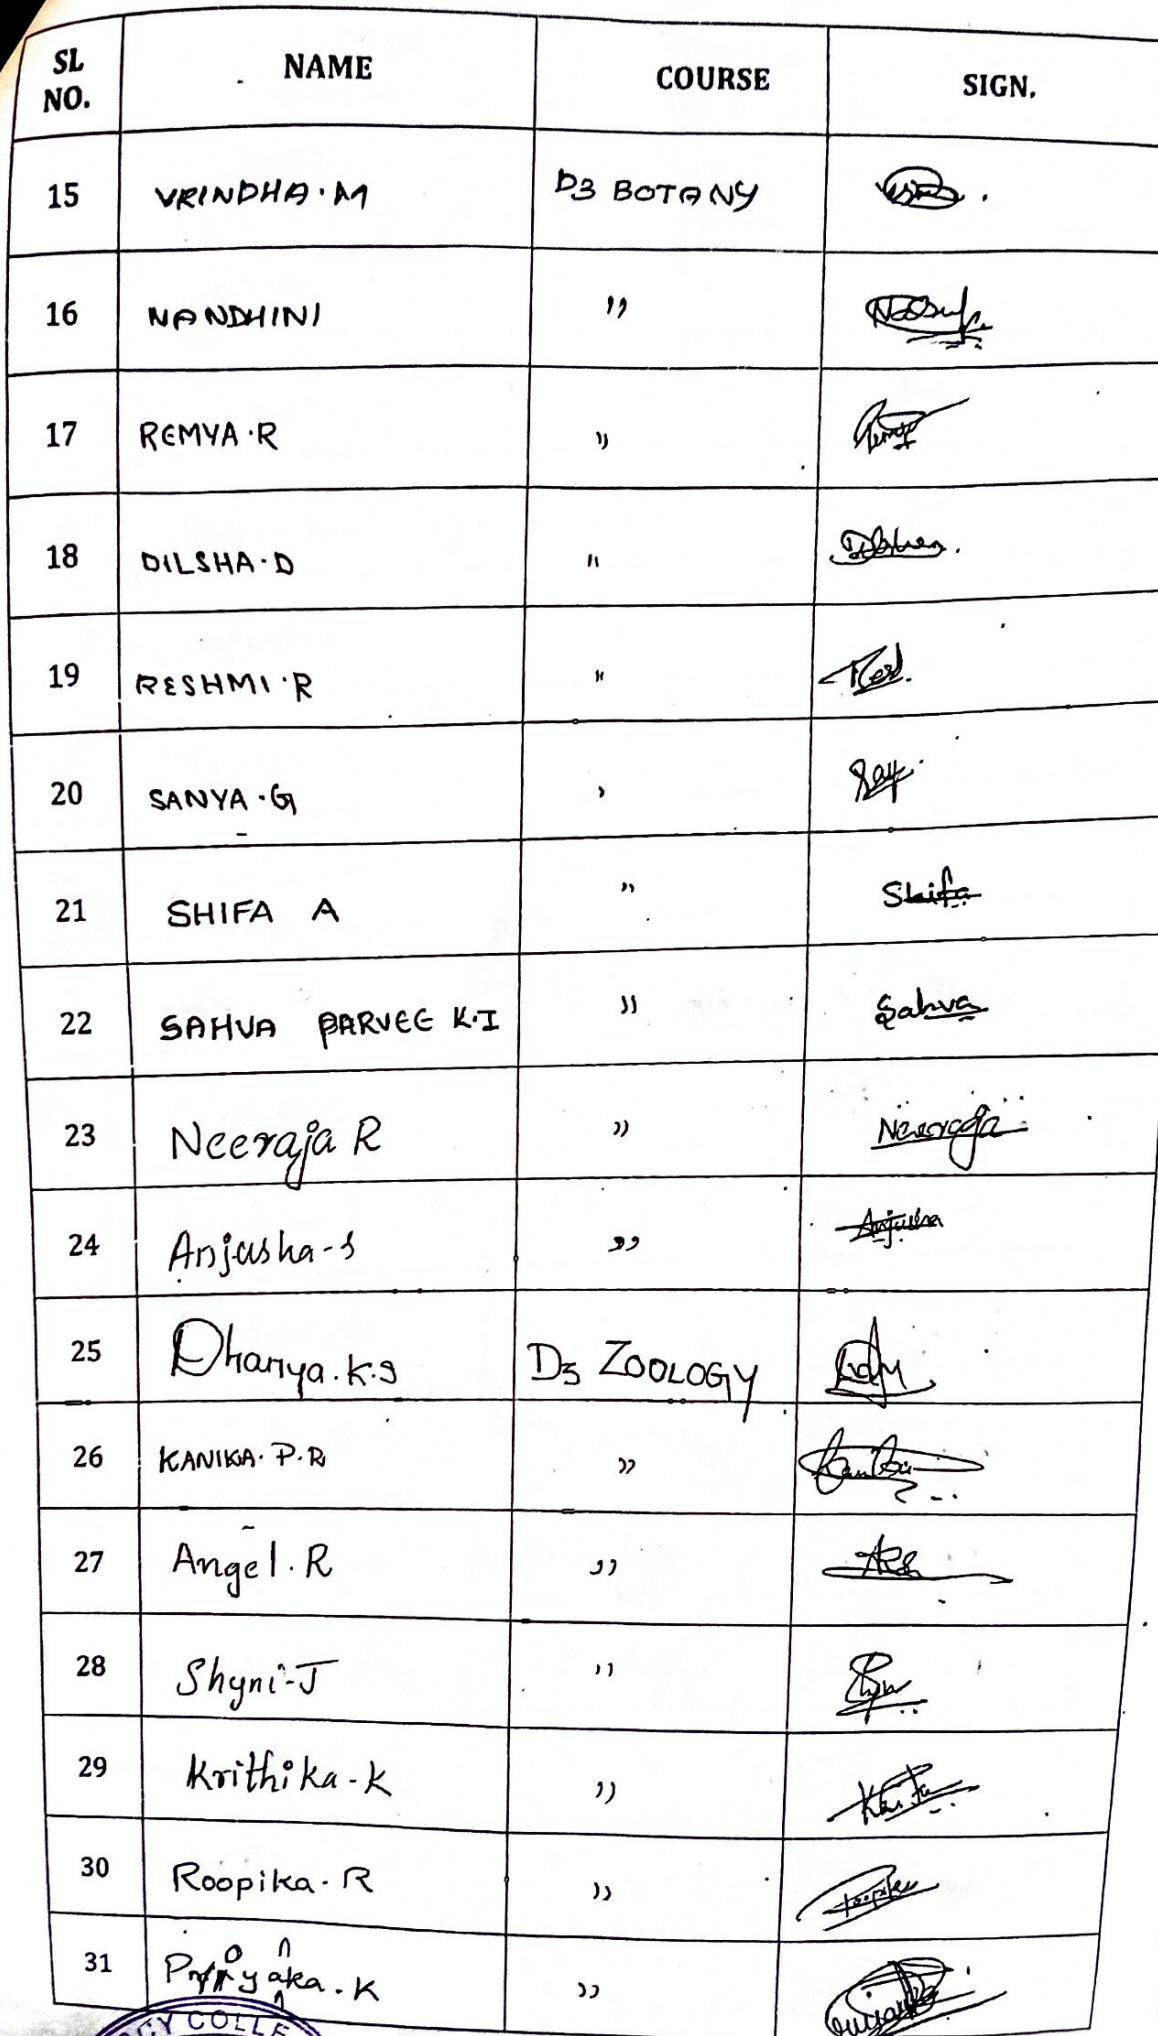 SL NO. NAME COURSE SIGN.
15 VRINDHA.M D3 BOTANY
16 NANDHINI "
17 REMYA.R "
18 DILSHA.D "
19 RESHMI.R "
20 SANYA.G "
21 SHIFA A " Shifa
22 SAHVA PARVEE K.I " Sahva
23 Neeraja R " Neeraja
24 Anjusha-S " Anjusha
25 Dhanya.K.S D3 ZOOLOGY
26 KANIKA.P.R "
27 Angel.R "
28 Shyni-J "
29 Krithika-K "
30 Roopika.R "
31 K "